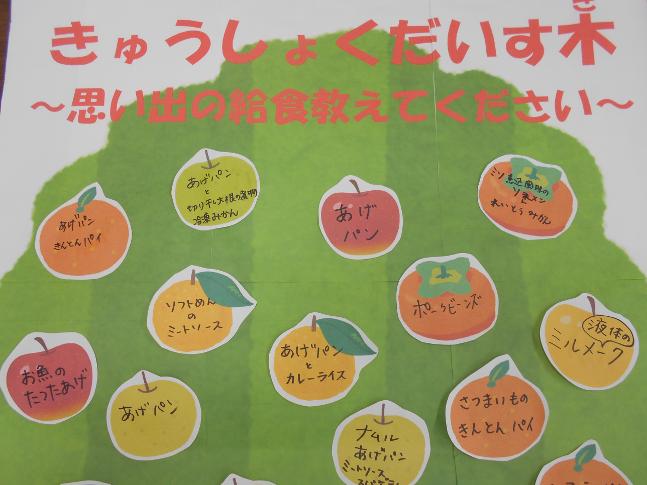 きゅうしょくだいす木
き
〜思い出の給食教えてください〜
あげパン
と
切り干し大根の煮物
冷凍みかん
あげ
パン
ミソ
ソ
れいとうみかん
あげパン
きんとんパイ
ソフトめん
の
ミートソース
ポークビーンズ
液体の
ミルメーク
あげパン
と
カレーライス
お魚の
たつたあげ
あげパン
さつまいもの
きんとん パイ
ナムル
あげパン
ミートソース